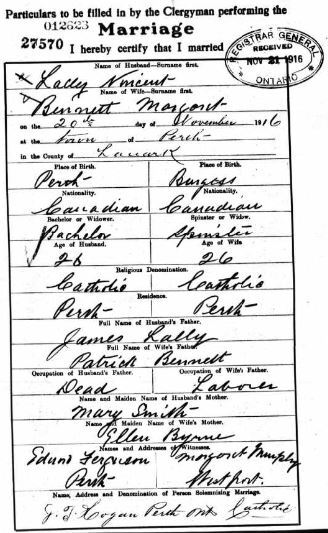 Particulars to be filled in by the Clergyman performing the
012623
Marriage
27570 I hereby certify that I married
REGISTRAR GENERAL
RECEIVED
NOV 21 1916
ONTARIO
Name of Husband—Surname first.
Lally Vincent
Name of Wife—Surname first.
Bennett Margaret
on the 20th day of November 1916
at the Town of Perth
in the County of Lanark
Place of Birth. Place of Birth.
Perth Burgess
Nationality. Nationality.
Canadian Canadian
Bachelor or Widower. Spinster or Widow.
Bachelor Spinster
Age of Husband. Age of Wife
26 26
Religious Denomination.
Catholic Catholic
Residence.
Perth Perth
Full Name of Husband's Father.
James Lally
Full Name of Wife's Father
Patrick Bennett
Occupation of Husband's Father. Occupation of Wife's Father.
Dead Laborer
Name and Maiden Name of Husband's Mother.
Mary Smith
Name and Maiden Name of Wife's Mother.
Ellen Byrne
Names and Addresses of Witnesses.
Ferguson Margaret Murphy
Perth Westport.
Name, Address and Denomination of Person Solemnising Marriage.
J. T. Hogan Perth Ont Catholic